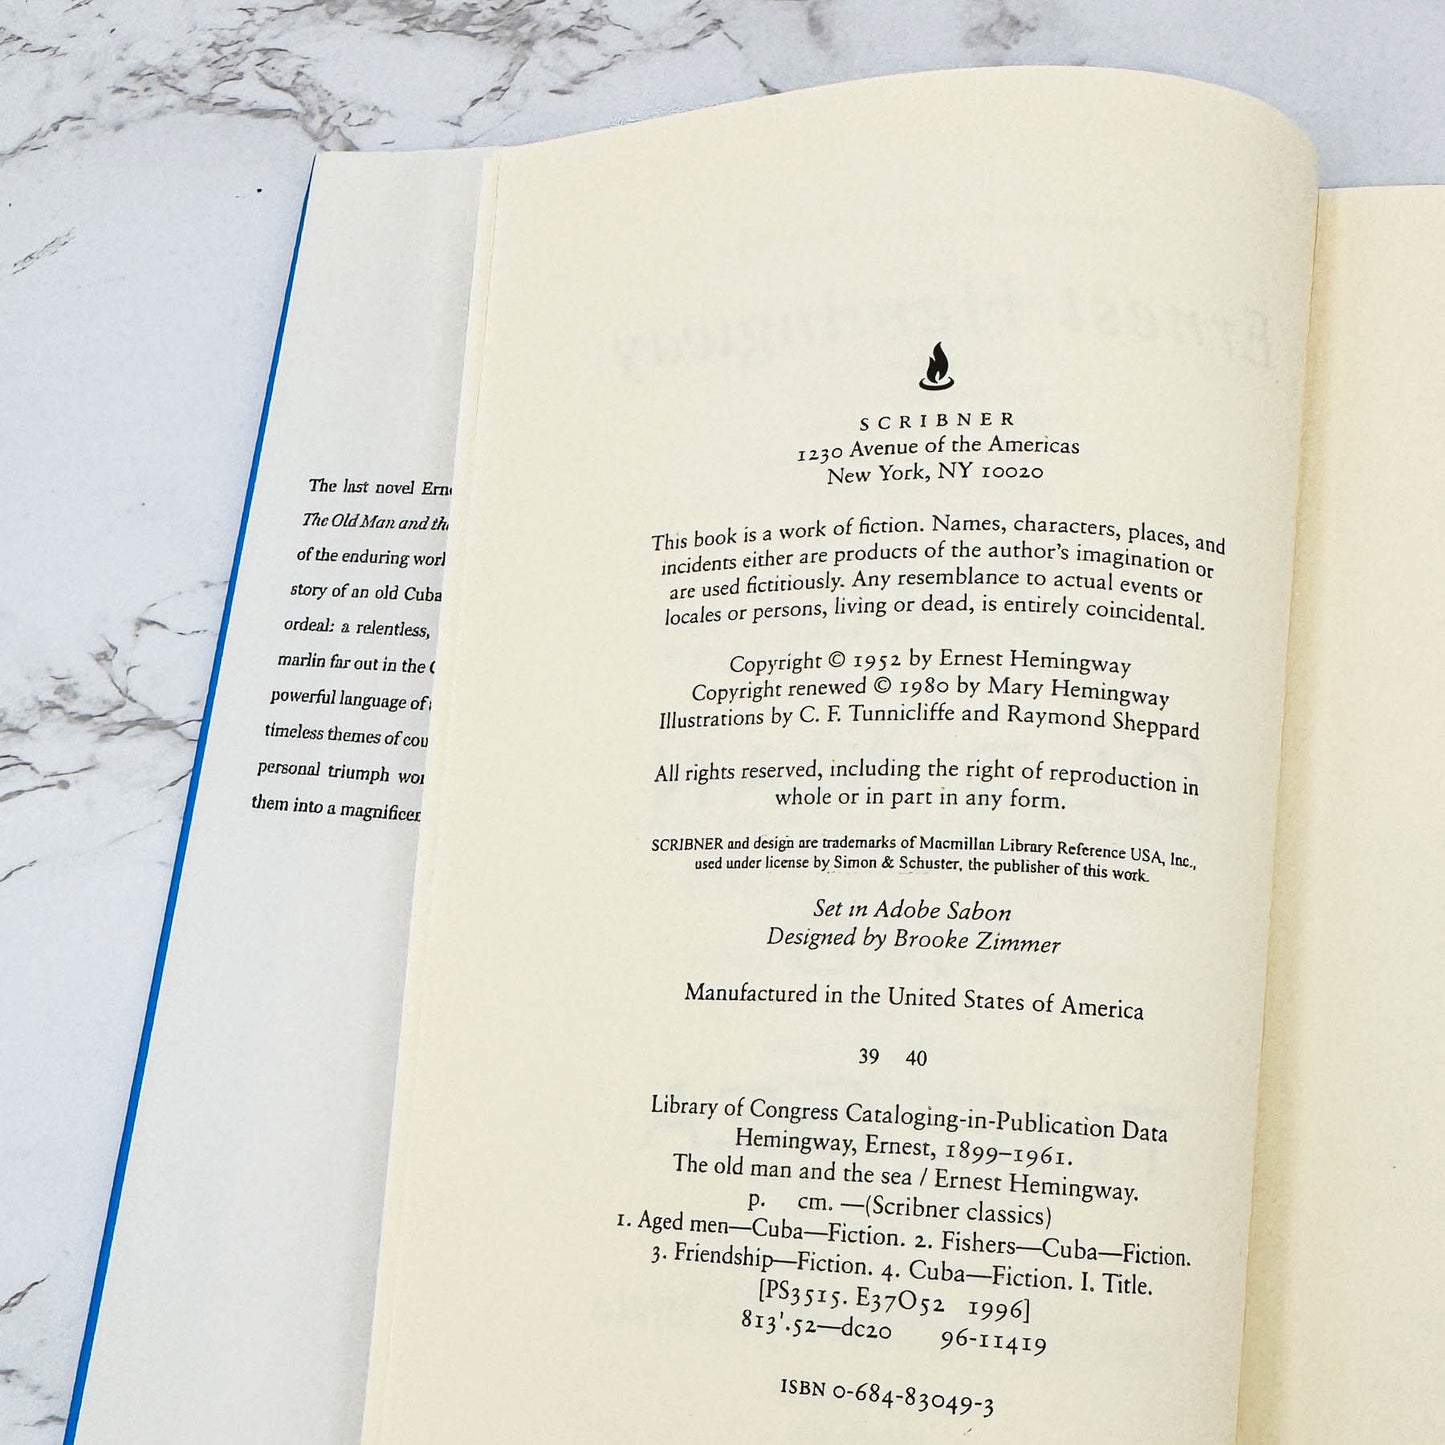 The last novel
The Old Man and
of the enduring
story of an old
ordeal: a relentless,
marlin far out in the
powerful language of
timeless themes of
personal triumph
them into a
Ernest Hemingway
SCRIBNER
1230 Avenue of the Americas
New York, NY 10020
This book is a work of fiction. Names, characters, places, and
incidents either are products of the author's imagination or
are used fictitiously. Any resemblance to actual events or
locales or persons, living or dead, is entirely coincidental.
Copyright © 1952 by Ernest Hemingway
Copyright renewed © 1980 by Mary Hemingway
Illustrations by C. F. Tunnicliffe and Raymond Sheppard
All rights reserved, including the right of reproduction in
whole or in part in any form.
SCRIBNER and design are trademarks of Macmillan Library Reference USA, Inc.,
used under license by Simon & Schuster, the publisher of this work.
Set in Adobe Sabon
Designed by Brooke Zimmer
Manufactured in the United States of America
39 40
Library of Congress Cataloging-in-Publication Data
Hemingway, Ernest, 1899–1961.
The old man and the sea / Ernest Hemingway.
p. cm. —(Scribner classics)
1. Aged men—Cuba—Fiction. 2. Fishers—Cuba—Fiction.
3. Friendship—Fiction. 4. Cuba—Fiction. I. Title.
[PS3515. E37O52 1996]
813'.52—dc20 96-11419
ISBN 0-684-83049-3